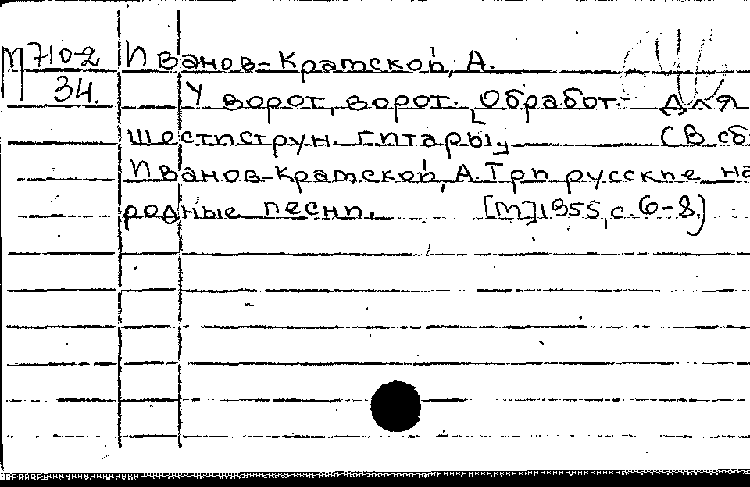 М 710-2 Иванов-Крамской, А.
34. У ворот, ворот. [Обработ. для
шестиструн. гитары] (В сб
Иванов-Крамской, А. Три русские на
родные песни. [М] 1955, с. 6-8)